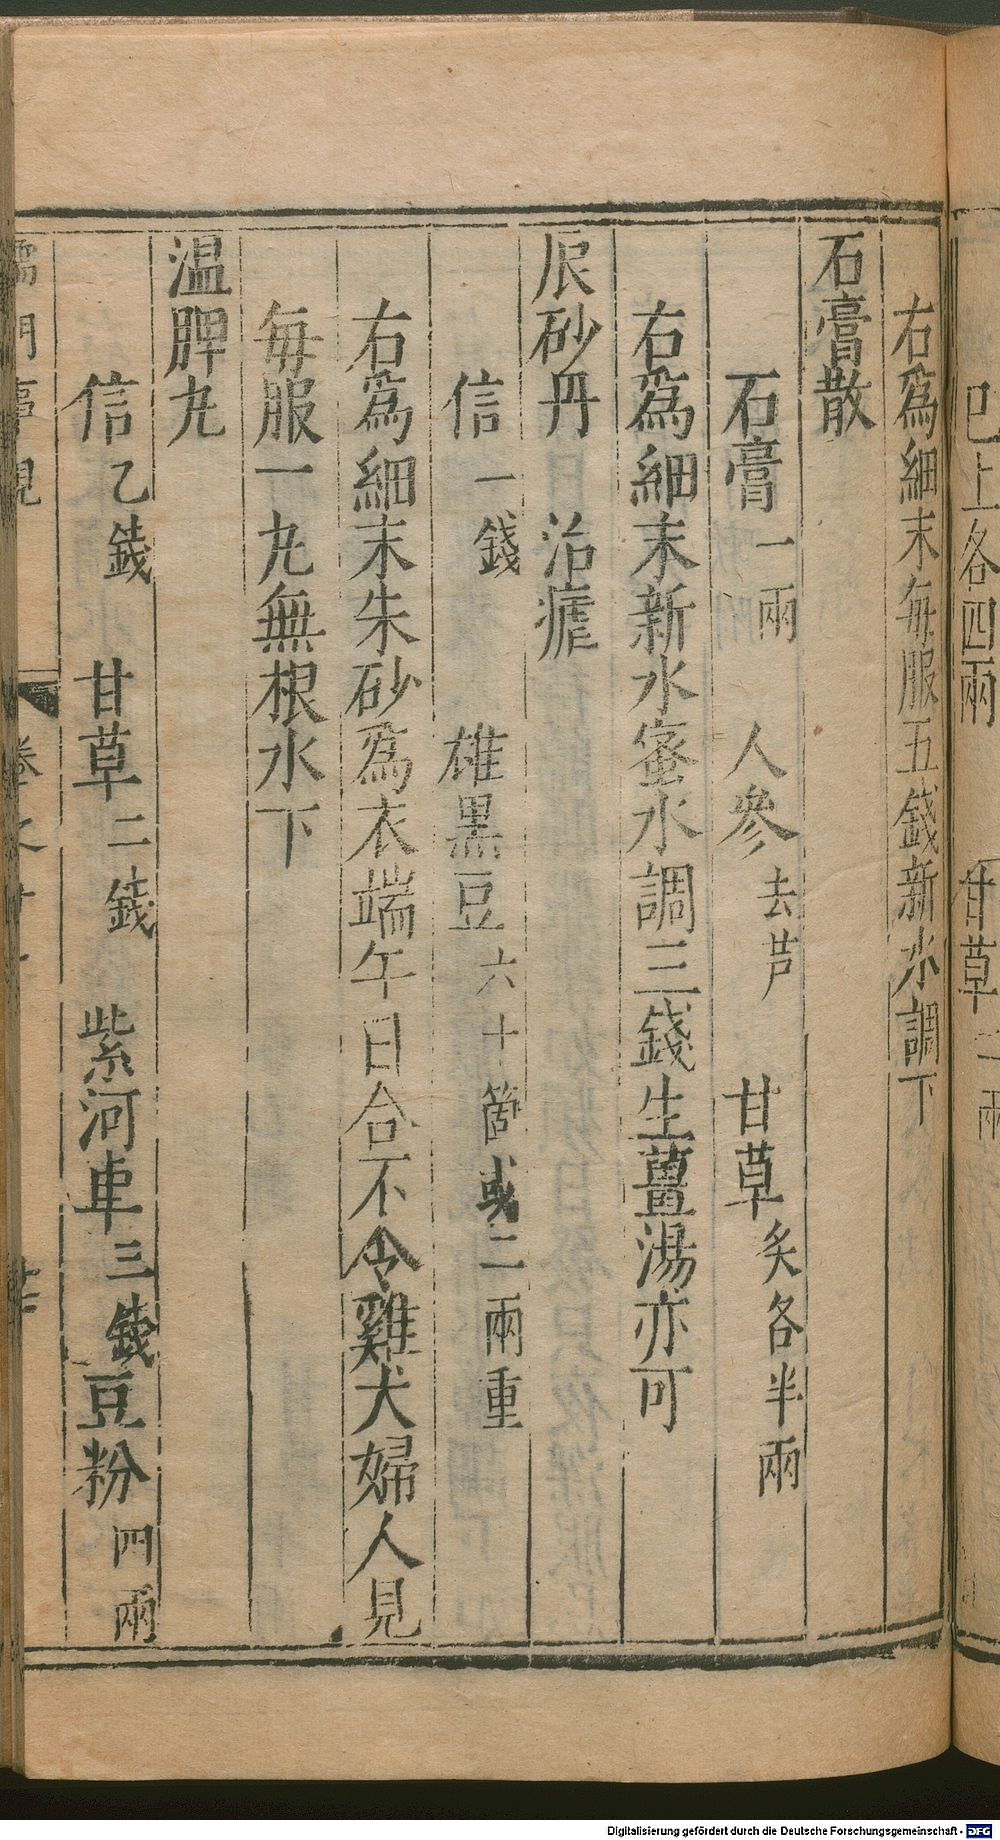 巳上各四兩　甘草一兩
右爲細末每服五錢新水調下
石膏散
石膏一兩　人參去芦　甘草炙各半兩
右爲細末新水蜜水調三錢生薑湯亦可
辰砂丹　治瘧
信一錢　雄黑豆六十箇或二兩重
右爲細末朱砂爲衣端午日合不令雞犬婦人見
每服一丸無根水下
温脾丸
信乙錢　甘草二錢　紫河車三錢豆粉四兩
儒門事親　卷之廿
Digitalisierung gefördert durch die Deutsche Forschungsgemeinschaft - DFG